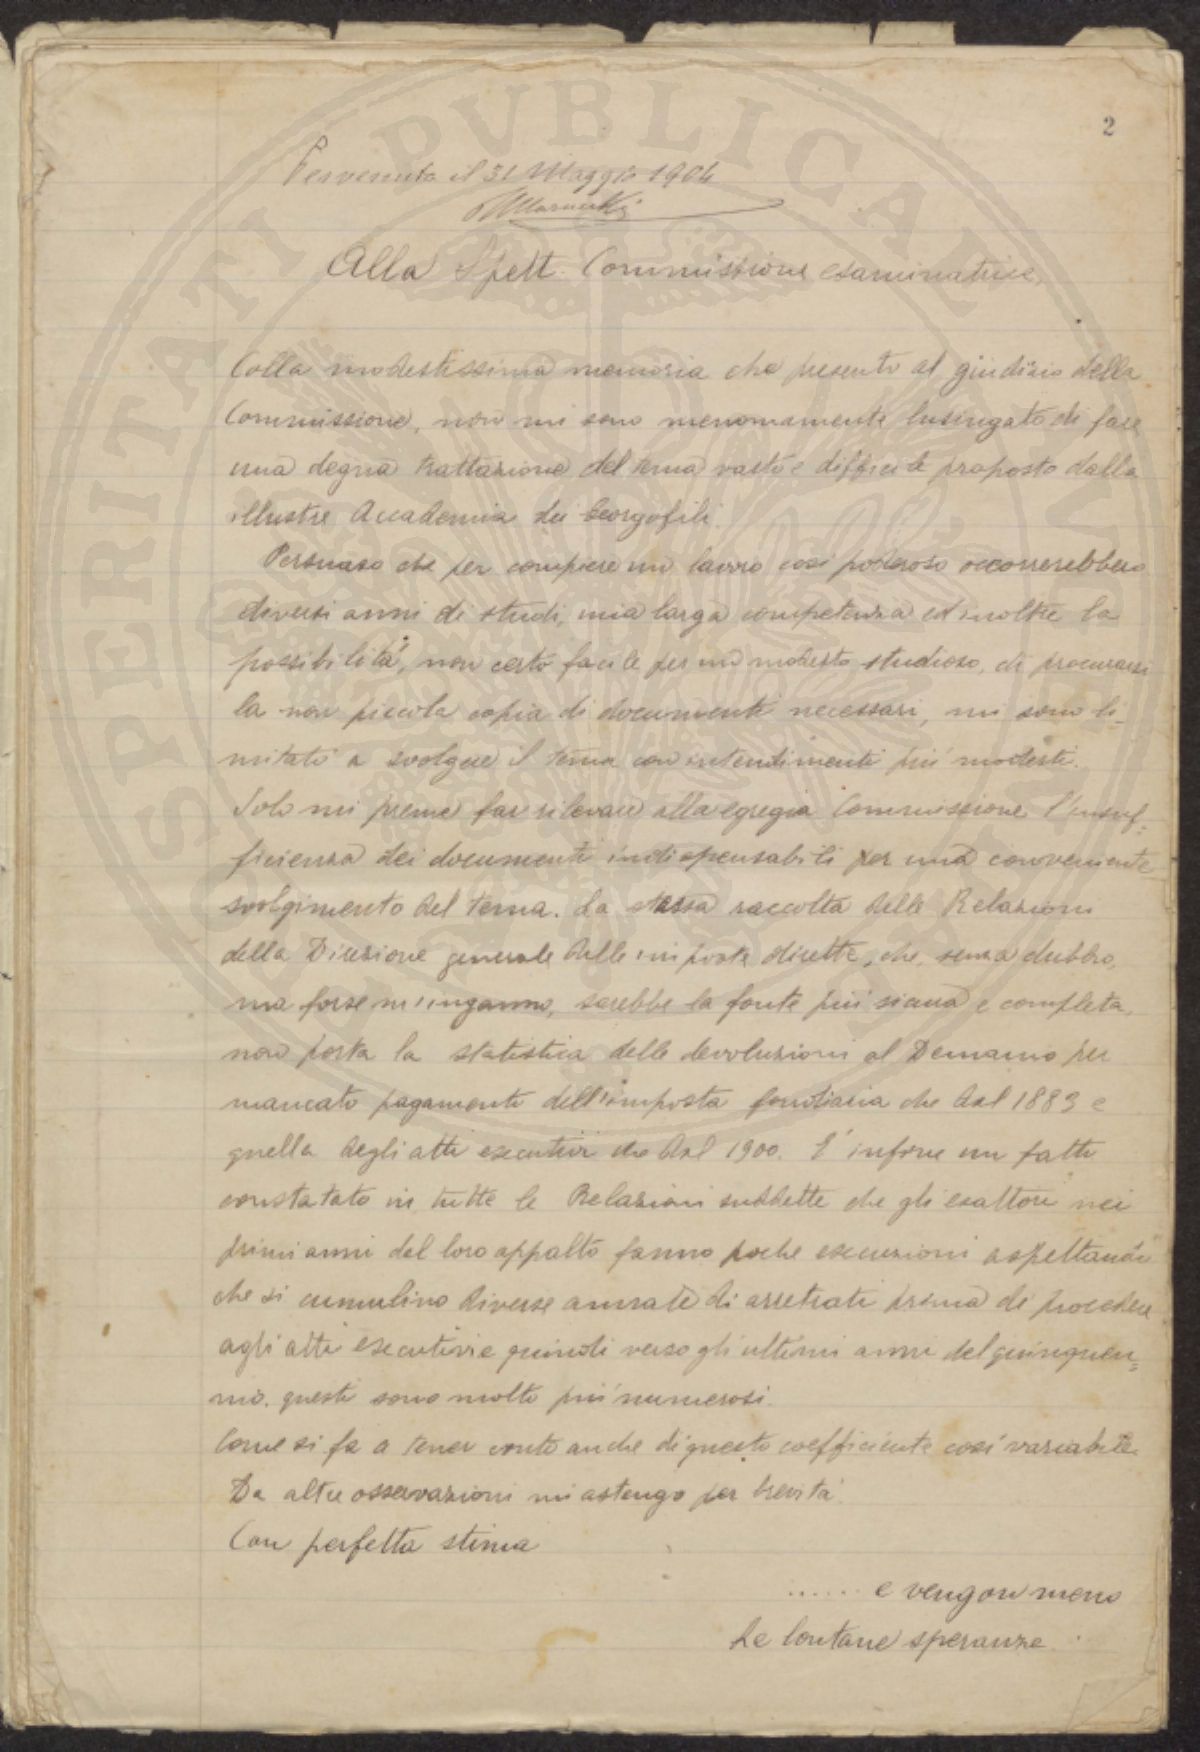 2
Pervenuta il 31 Maggio 1904
Alla Spett. Commissione esaminatrice,
Colla modestissima memoria che presento al giudizio della
Commissione, non mi sono menomamente lusingato di fare
una degna trattazione del tema vasto e difficile proposto dalla
illustre Accademia dei Georgofili.
Persuaso che per compiere un lavoro così poderoso occorrerebbero
diversi anni di studi, una larga competenza ed inoltre la
possibilità, non certo facile per un modesto studioso, di procurarsi
la non piccola copia di documenti necessari, mi sono li-
mitato a svolgere il tema con intendimenti più modesti.
Solo mi preme far rilevare alla egregia Commissione l'insuf-
ficienza dei documenti indispensabili per una conveniente
svolgimento del tema. La stessa raccolta delle Relazioni
della Direzione generale delle imposte dirette, che, senza dubbio,
ma forse m'inganno, sarebbe la fonte più sicura e completa,
non porta la statistica delle devoluzioni al Demanio per
mancato pagamento dell'imposta fondiaria che dal 1883 e
quella degli atti esecutivi che dal 1900. E' infine un fatto
constatato in tutte le Relazioni suddette che gli esattori nei
primi anni del loro appalto fanno poche esecuzioni aspettando
che si cumulino diverse annate di arretrati prima di procedere
agli atti esecutivi e quindi verso gli ultimi anni del quinquen=
nio questi sono molto più numerosi.
Come si fa a tener conto anche di questo coefficiente così variabile
Da altre osservazioni mi astengo per brevità.
Con perfetta stima
...... e vengon meno
Le lontane speranze.
SPERITATI PVBLICAE